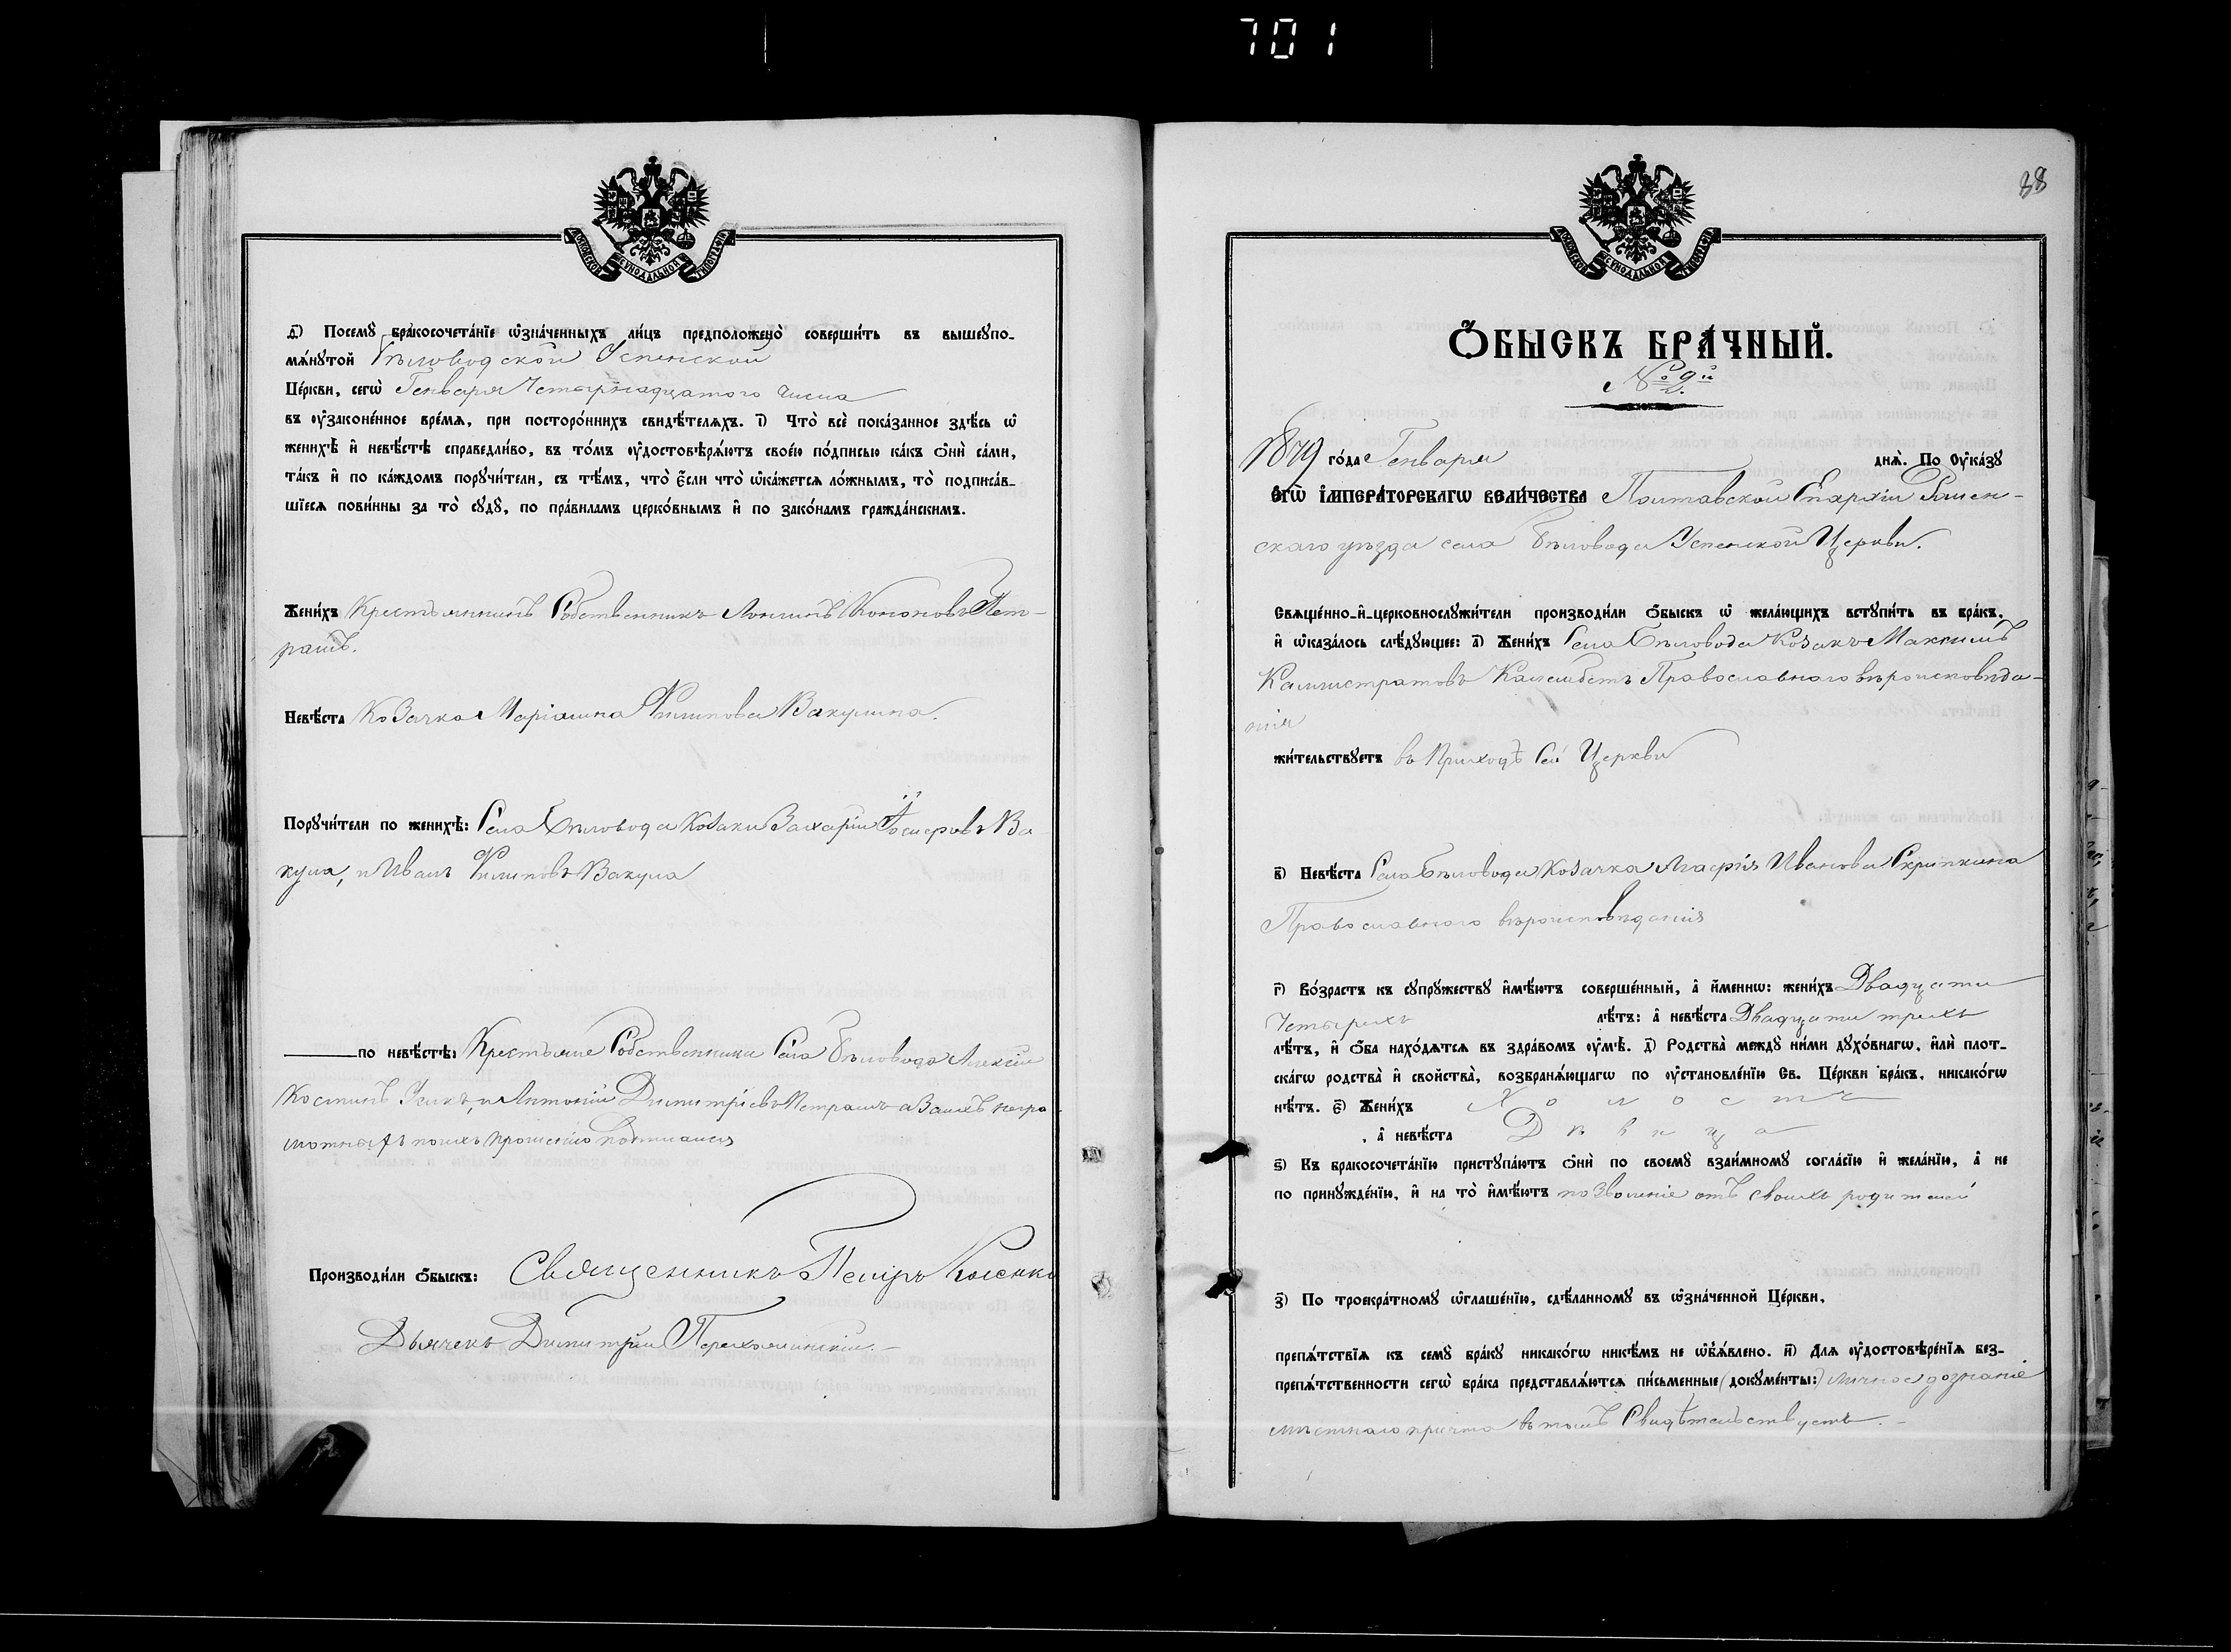 701
МОСКОВСКОЙ СУНОДАЛЬНОЙ ТИПОГРАФІИ
д҃) Посемꙋ̀ бракосочета́нїе ѡ҆зна́ченныхъ ли́цъ предположено̀ соверши́ть въ вышеꙋпо-
мѧ́нꙋтой Бѣловодской Успенской
Це́ркви, сегѡ̀ Генваря Четырнадцатого числа
въ ᲂу҆законе́нное вре́мѧ, при посторо́ннихъ свидѣ́телѧхъ. і҃) Что̀ всѐ пока́занное здѣ́сь ѡ҆
женихѣ̀ и҆ невѣ́стѣ справедли́во, въ то́мъ ᲂу҆достовѣрѧ́ютъ свое́ю по́дписью ка́къ ѻ҆нѝ са́ми,
та́къ и҆ по ка́ждомъ порꙋчи́тели, съ тѣ́мъ, что̀ є҆́сли что̀ ѡ҆ка́жетсѧ ло́жнымъ, то̀ подписа́в-
шїесѧ пови́нны за то̀ сꙋдꙋ̀, по пра́виламъ церко́внымъ и҆ по зако́намъ гражда́нскимъ.
Жени́хъ Крестьянинъ Собственникъ Логинъ Кононовъ Пет-
рашъ.
Невѣ́ста Козачка Маріанна Филипова Вакулина.
Порꙋчи́тели по женихѣ̀: Села Бѣловода Козаки Захарій Ва
кула, и Иванъ Филиповъ Вакула
по невѣ́стѣ: Крестьяне Собственники Села Бѣловода Алексій
Усикъ, и Антоній Димитріевъ Петрашъ а Занихъ негра
мотныхъ поихъ прошенію подписался
Производи́ли ѻ҆́быскъ: Священникъ Петръ
Дьячекъ Димитрій
88
МОСКОВСКОЙ СУНОДАЛЬНОЙ ТИПОГРАФІИ
Ѻ҆́БЫСКЪ БРА́ЧНЫЙ.
№ 9й
1879 го́да Генваря днѧ̀. По Оу҆ка́зꙋ
Е҆гѡ̀ И҆мпера́торскагѡ Вели́чества Полтавской Епархіи Ромен-
скаго уѣзда села Бѣловода Успенской Церкви.
Свѧще́нно-и҆-церковнослꙋжи́тели производи́ли ѻ҆́быскъ ѡ҆ жела́ющихъ встꙋпи́ть въ бра́къ,
и҆ ѡ҆каза́лось слѣ́дꙋющее: а҃) Жени́хъ Села Бѣловода Козакъ Максимъ
Каллистратовъ Православнаго вѣроисповѣда-
нія
жи́тельствꙋетъ въ Приходѣ Сей Церкви
в҃) Невѣ́ста Села Бѣловода Козачка Марія Иванова Скрипкина
Православного вѣроисповѣданія
г҃) Во́зрастъ къ сꙋпрꙋ́жествꙋ и҆мѣ́ютъ соверше́нный, а҆ и҆́меннѡ: жени́хъ Двадцати
Четырехъ лѣ́тъ: а҆ невѣ́ста Двадцати трехъ
лѣ́тъ, и҆ ѻ҆́ба нахо́дѧтсѧ въ здра́вомъ ᲂу҆мѣ̀. д҃) Родства̀ междꙋ̀ ни́ми дꙋхо́внагѡ, и҆лѝ плот-
ска́гѡ родства̀ и҆ свойства̀, возбранѧ́ющагѡ по ᲂу҆становле́нїю Св. Це́ркви бра́къ, никако́гѡ
нѣ́тъ. є҃) Жени́хъ Холостъ
, а҆ невѣ́ста Дѣвица
ѕ҃) Къ бракосочета́нїю пристꙋпа́ютъ ѻ҆нѝ по своемꙋ̀ взаи́мномꙋ согла́сїю и҆ жела́нїю, а҆ не
по принꙋжде́нїю, и҆ на то̀ и҆мѣ́ютъ позволеніе отъ своихъ родителей
з҃) По троекра́тномꙋ ѡ҆глаше́нїю, сдѣ́ланномꙋ въ ѡ҆зна́ченной Це́ркви,
препѧ́тствїѧ къ семꙋ̀ бра́кꙋ никако́гѡ никѣ́мъ не ѡ҆б̾ѧ́влено. и҃) Для ᲂу҆достовѣре́нїѧ без-
препѧ́тственности сегѡ̀ бра́ка представлѧ́ютсѧ пи́сьменные (докꙋме́нты:) личное дознаніе
мѣстнаго причта въ томъ Свидѣтельствуетъ.